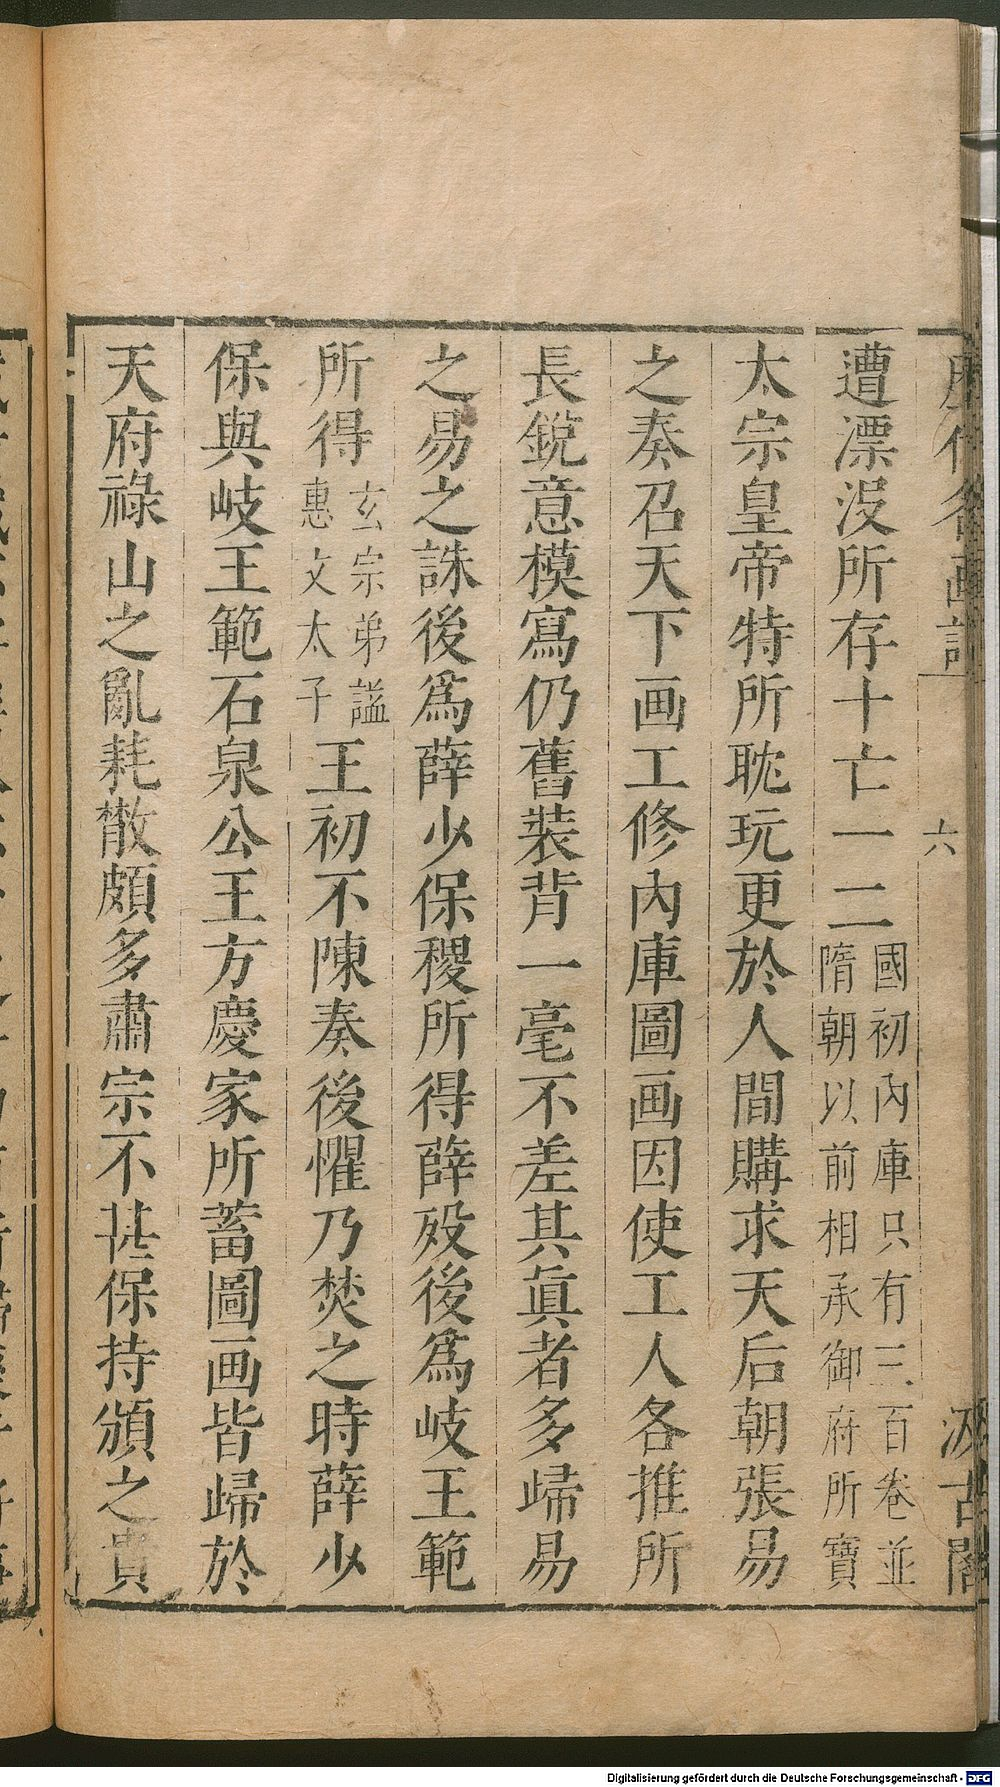 歷代名画記
六
汲古閣
遭漂沒所存十亡一二國初內庫只有三百卷並隋朝以前相承御府所寶
太宗皇帝特所耽玩更於人間購求天后朝張易
之奏召天下画工修內庫圖画因使工人各推所
長銳意模寫仍舊裝背一毫不差其眞者多歸易
之易之誅後爲薛少保稷所得薛歿後爲岐王範
所得玄宗弟謚惠文太子王初不陳奏後懼乃焚之時薛少
保與岐王範石泉公王方慶家所蓄圖画皆歸於
天府祿山之亂耗散頗多肅宗不甚保持頒之貴
Digitalisierung gefördert durch die Deutsche Forschungsgemeinschaft - DFG